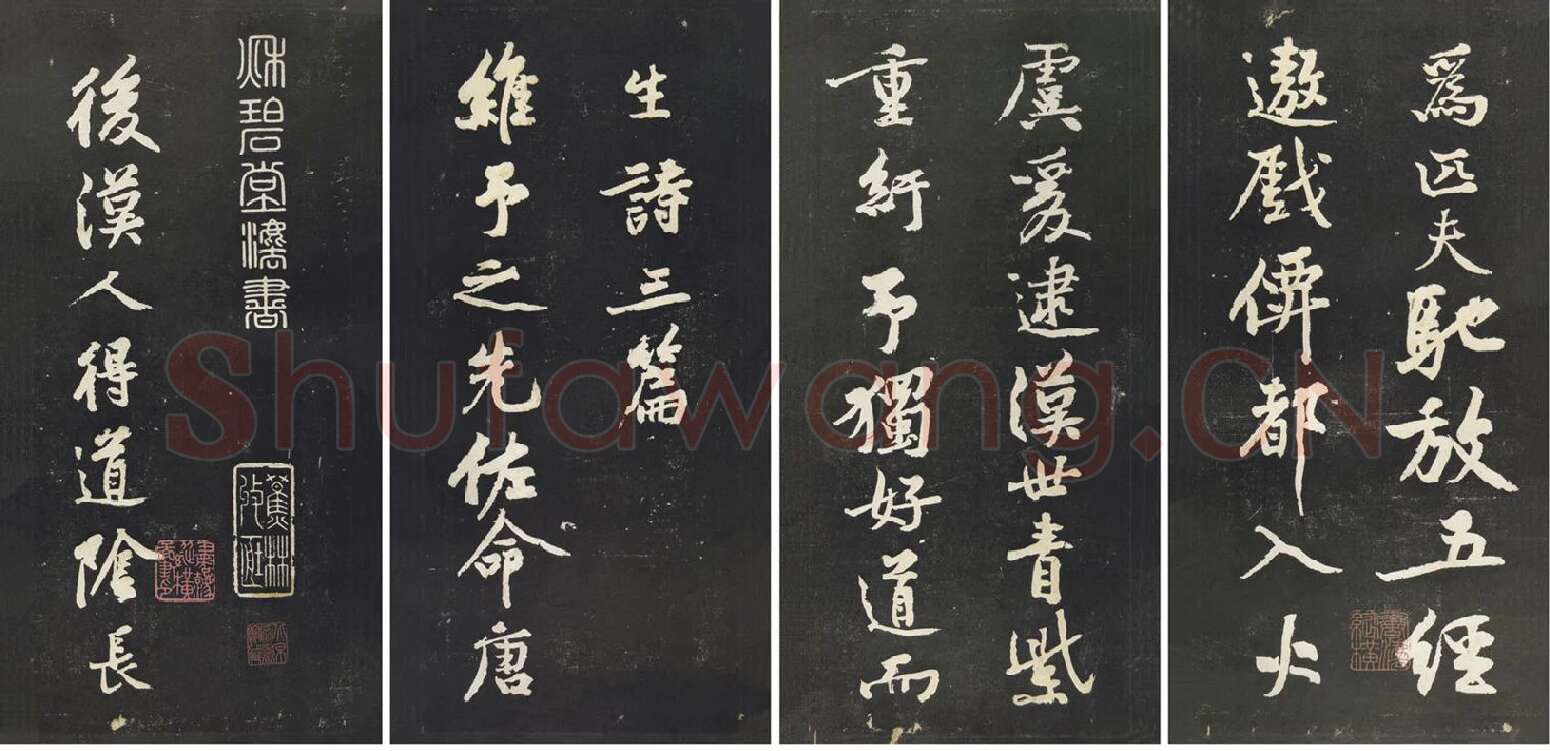 秋碧堂灋書
後漢人得道陰長
生詩三篇
維予之先佐命唐
虞爰逮漢世青紫
重紆予獨好道而
爲匹夫馳放五經
遨戲僊都入火
Shufawang.CN